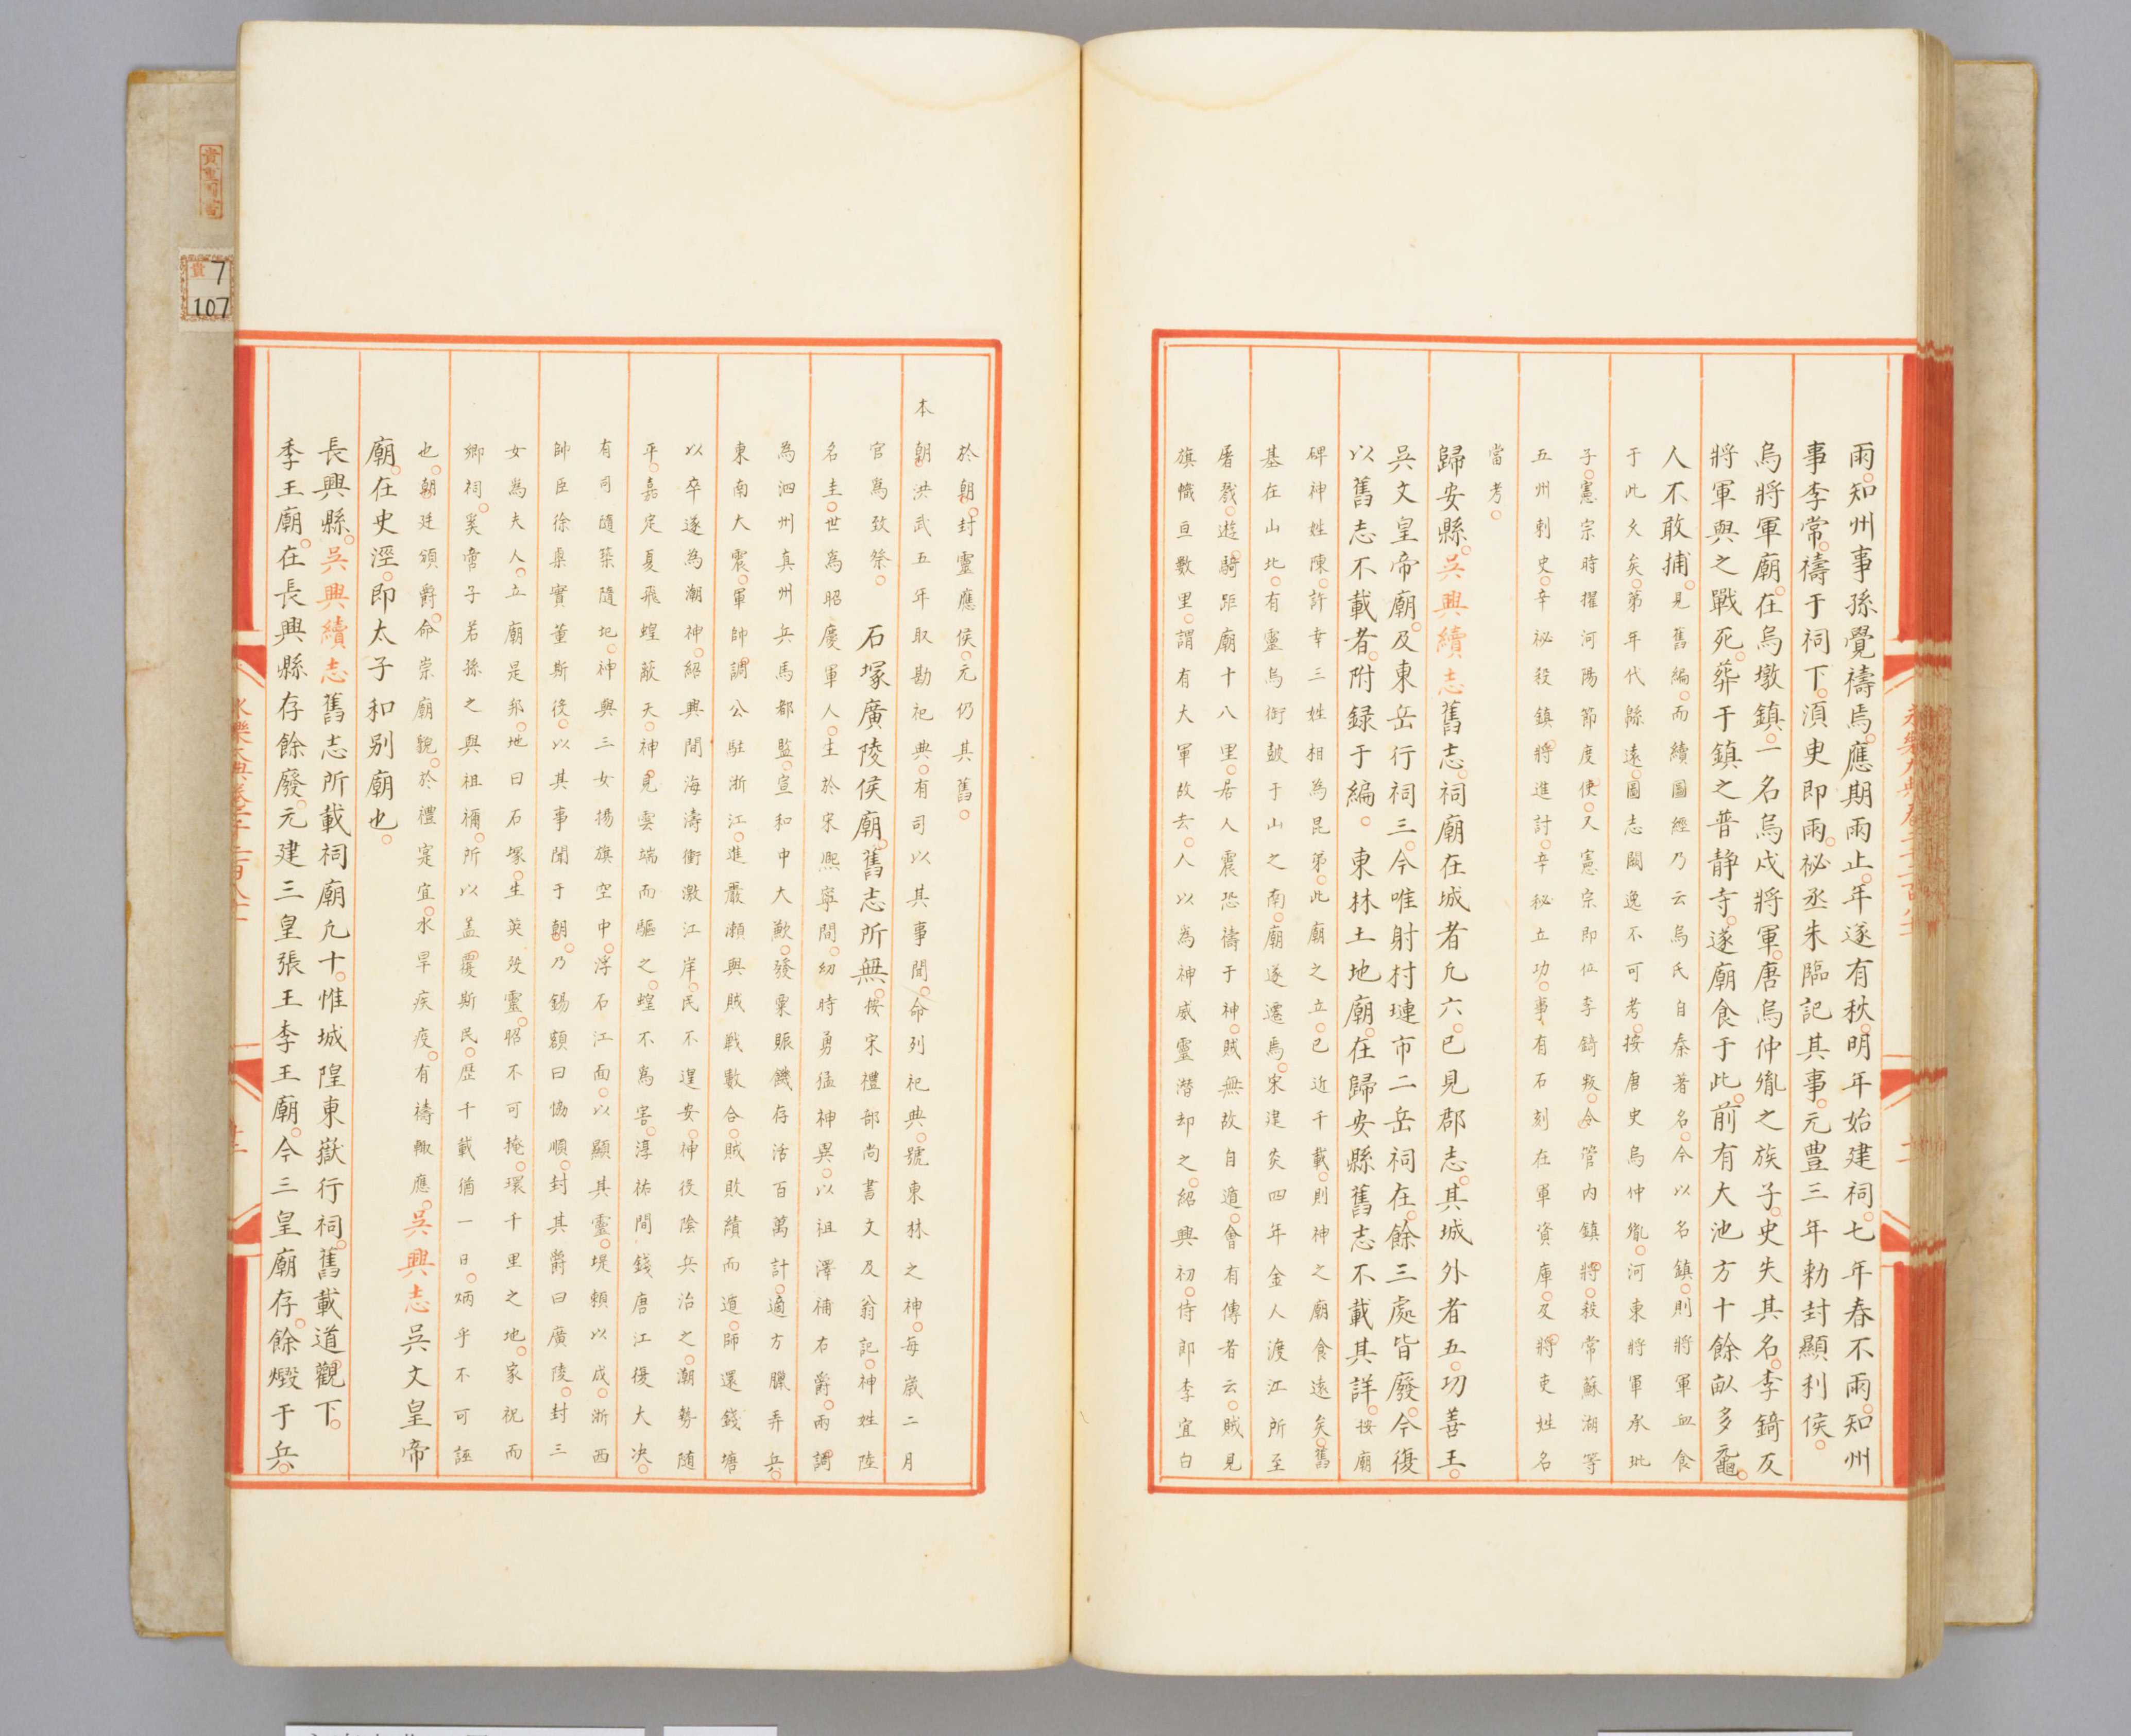 雨。知州事孫覺禱焉。應期雨止。年遂有秋。明年始建祠。七年春不雨。知州
事李常。禱于祠下。湏臾即雨。祕丞朱臨記其事。元豊三年勑封顯利侯。
烏將軍廟。在烏墩鎮。一名烏戍將軍。唐烏仲胤之族子。史失其名。李錡反
將軍與之戰死。葬于鎮之普静寺。遂廟食于此。前有大池方十餘畝多黿。
人不敢捕。見舊編。而續圖經乃云烏氏自秦著名。今以名鎮。則將軍血食
于此久矣。第年代緜遠。圖志闕逸不可考。按唐史烏仲胤。河東將軍承玭
子。憲宗時擢河陽節度使。又憲宗即位李錡叛。令管内鎮將。殺常蘇湖等
五州刺史。辛祕殺鎮將進討。辛秘立功。事有石刻在軍資庫。及將吏姓名
當考。
歸安縣。吳興續志舊志。祠廟在城者凢六。已見郡志。其城外者五。功善王。
吳文皇帝廟。及東岳行祠三。今唯射村璉市二岳祠在。餘三處皆廢。今復
以舊志不載者。附録于編。東林土地廟。在歸安縣舊志不載其詳。按廟
碑神姓陳。許幸三姓相為昆弟。此廟之立。已近千載。則神之廟食遠矣。舊
基在山北。有靈烏銜皷于山之南。廟遂遷焉。宋建炎四年金人渡江所至
屠戮。遊騎距廟十八里。居人震恐禱于神。賊無故自遁。會有傳者云。賊見
旗幟亘數里。謂有大軍故去。人以為神威靈潛却之。紹興初。侍郎李宜白
於朝。封靈應侯。元仍其舊。
本朝洪武五年取勘祀典。有司以其事聞。命列祀典。號東林之神。每嵗二月
官為致祭。石塚廣陵侯廟。舊志所無。按宋禮部尚書文及翁記。神姓陸
名圭。世為昭慶軍人。生於宋熈寧間。幼時勇猛神異。以祖澤補右爵。兩調
為泗州真州兵馬都監。宣和中大歉。發粟賑饑存活百萬計。適方臘弄兵。
東南大震。軍帥調公駐浙江。進嚴瀨與賊戰數合。賊敗績而遁。師還錢塘
以卒遂為潮神。紹興間海濤衝激江岸。民不遑安。神後陰兵治之。潮勢随
平。嘉定夏飛蝗蔽天。神見雲端而驅之。蝗不為害。淳祐間錢唐江復大决。
有司隨築隨圮。神與三女揚旗空中。浮石江面。以顯其靈。堤頼以成。浙西
帥臣徐㮚實董斯後。以其事聞于朝。乃錫額曰協順。封其爵曰廣陵。封三
女為夫人。立廟是邦。地曰石塚。生英殁靈。昭不可掩。環千里之地。家祝而
鄉祠。奚啻子若孫之與祖禰。所以盖覆斯民。歴千載猶一日。炳乎不可誣
也。朝廷頒爵。命崇廟貌。於禮寔宜。水旱疾疫。有禱輙應。吳興志吳文皇帝
廟。在史溼。即太子和别廟也。
長興縣。吳興續志舊志所載祠廟凢十。惟城隍東嶽行祠。舊載道觀下。
季王廟。在長興縣存餘廢。元建三皇張王李王廟。今三皇廟存。餘燬于兵。
貴重圖書
貴 7
107